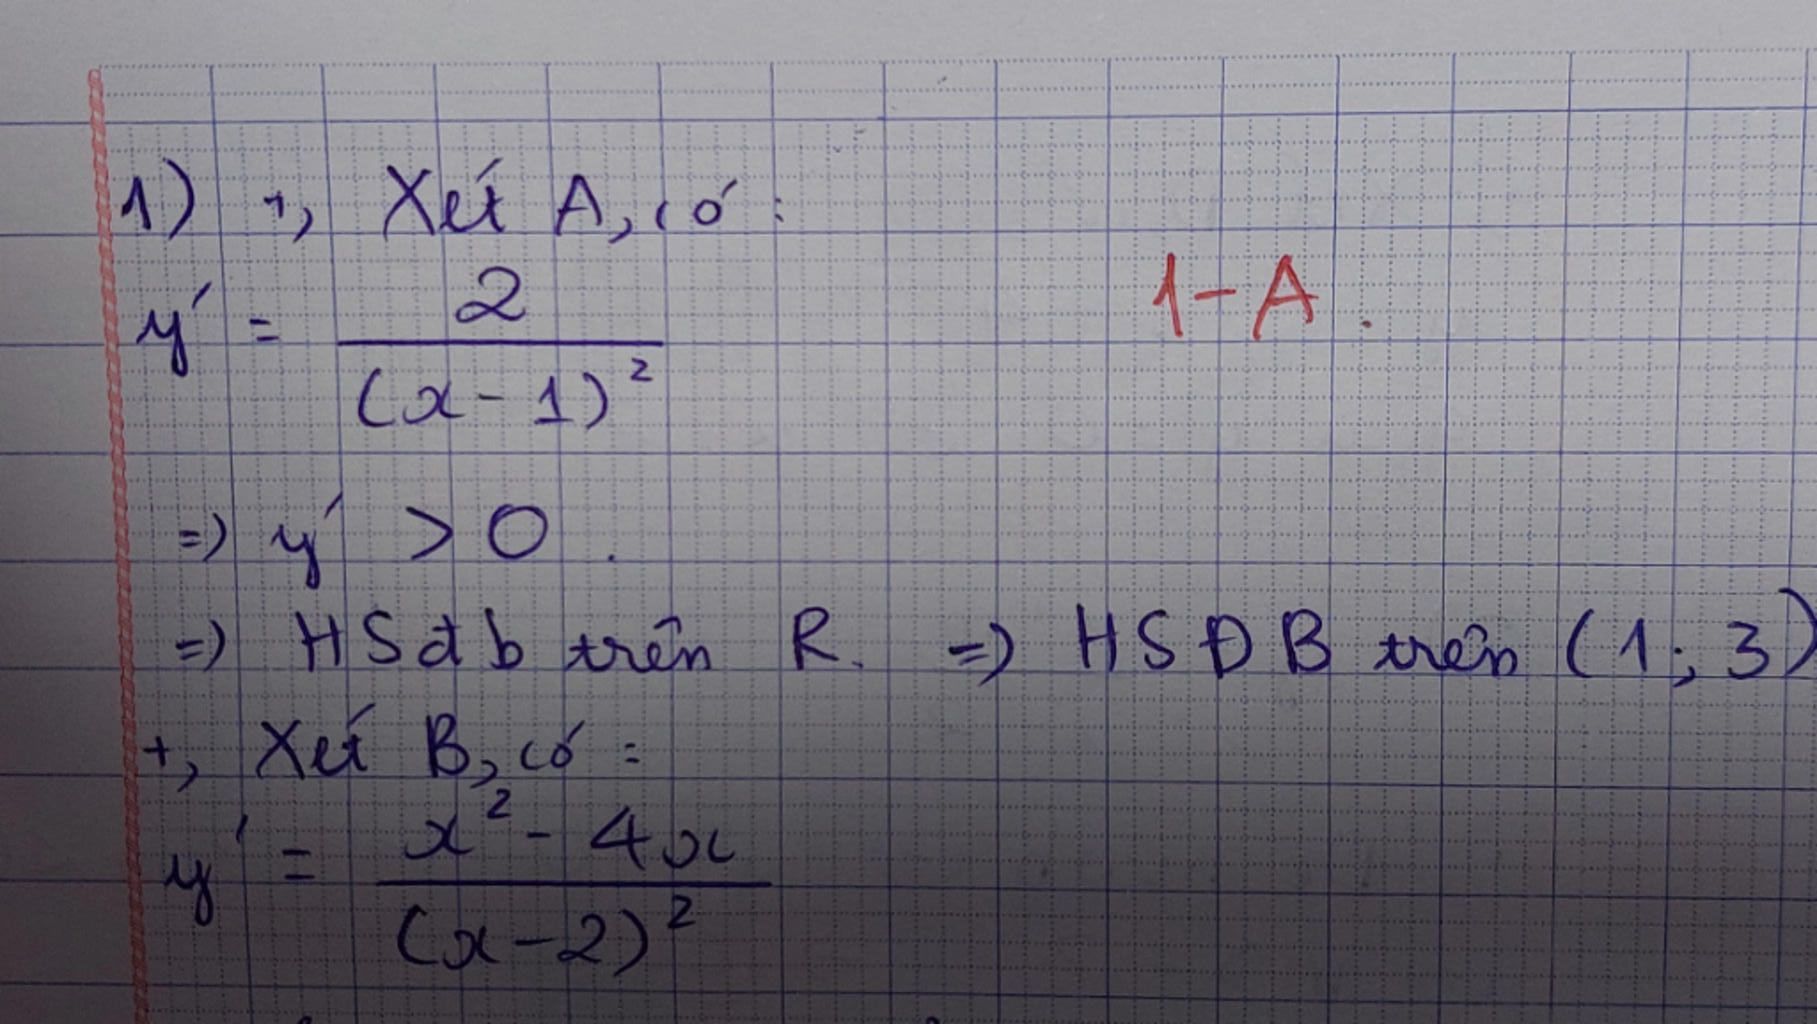 1) +, Xét A, có :
y' = 2 / (x - 1)²
1 - A .
=> y' > 0 .
=> HSđb trên R. => HSĐB trên (1 ; 3)
+, Xét B, có :
y' = x² - 4x / (x - 2)²